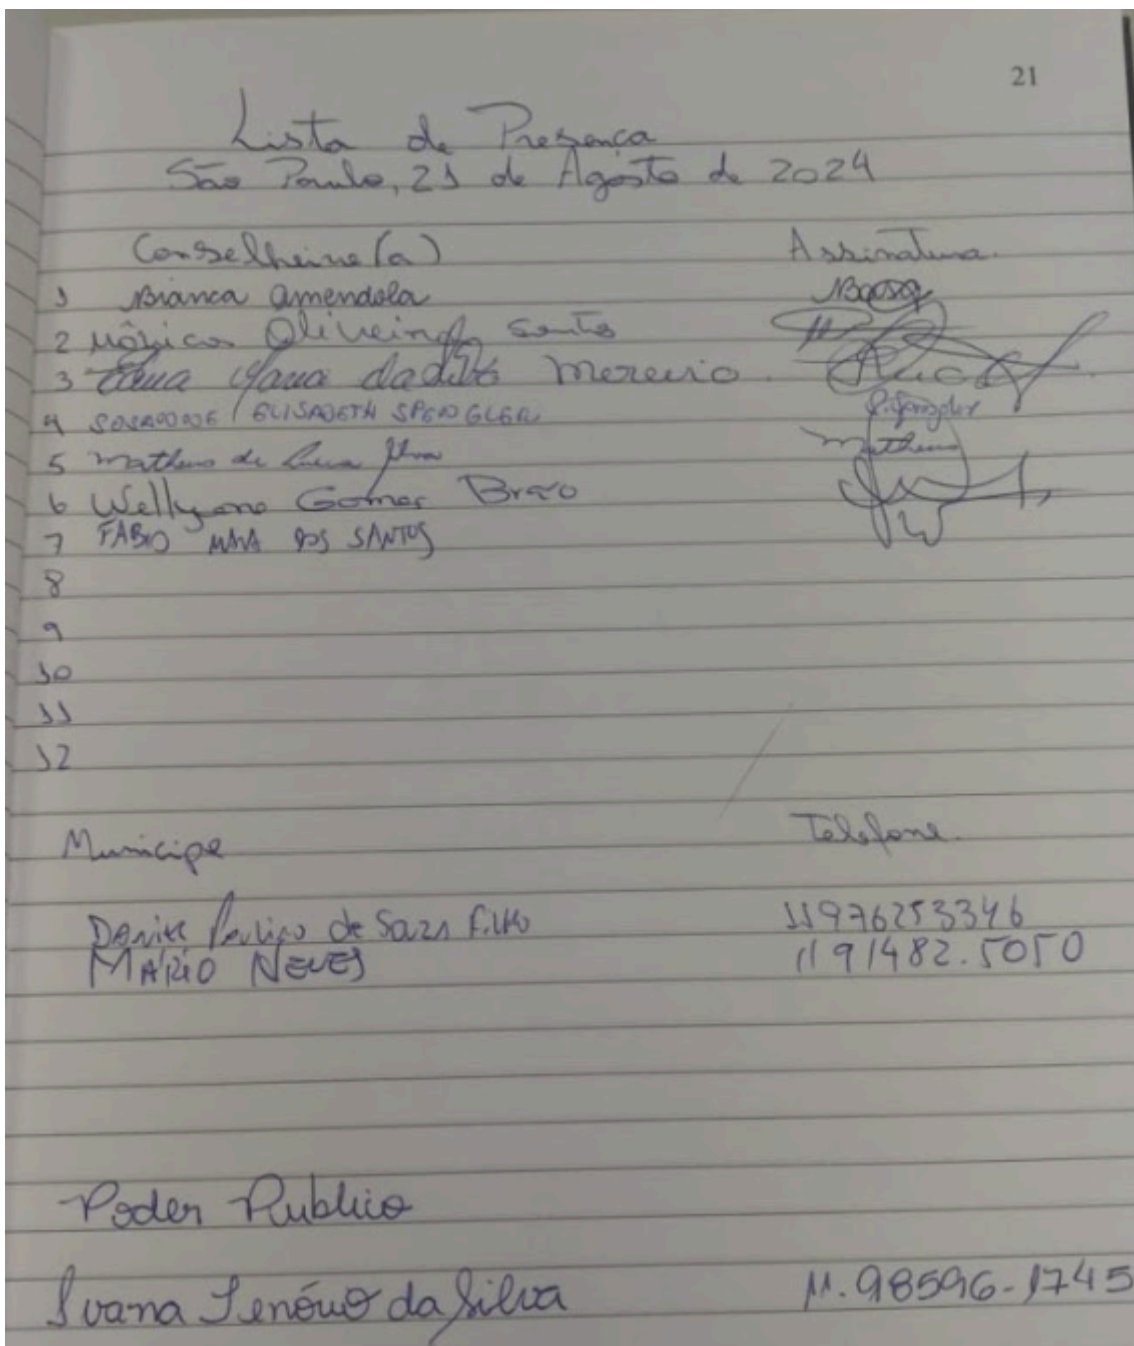 21
Lista de Presença
São Paulo, 21 de Agosto de 2024
Conselheiro(a) Assinatura.
1 Bianca Amendola
2 Mônica Oliveira Santos
3 Moreira
4 ELISABETH SPENGLER
5 Matheus de Silva Matheus
6 Wellyene Gomes Bravo
7 FABIO MAIA DOS SANTOS
8
9
10
11
12
Municipe Telefone.
de Souza Filho 11976253346
MÁRIO NEVES 11 91482.5050
Poder Publico
Ivana Tenório da Silva 11.98596-1745